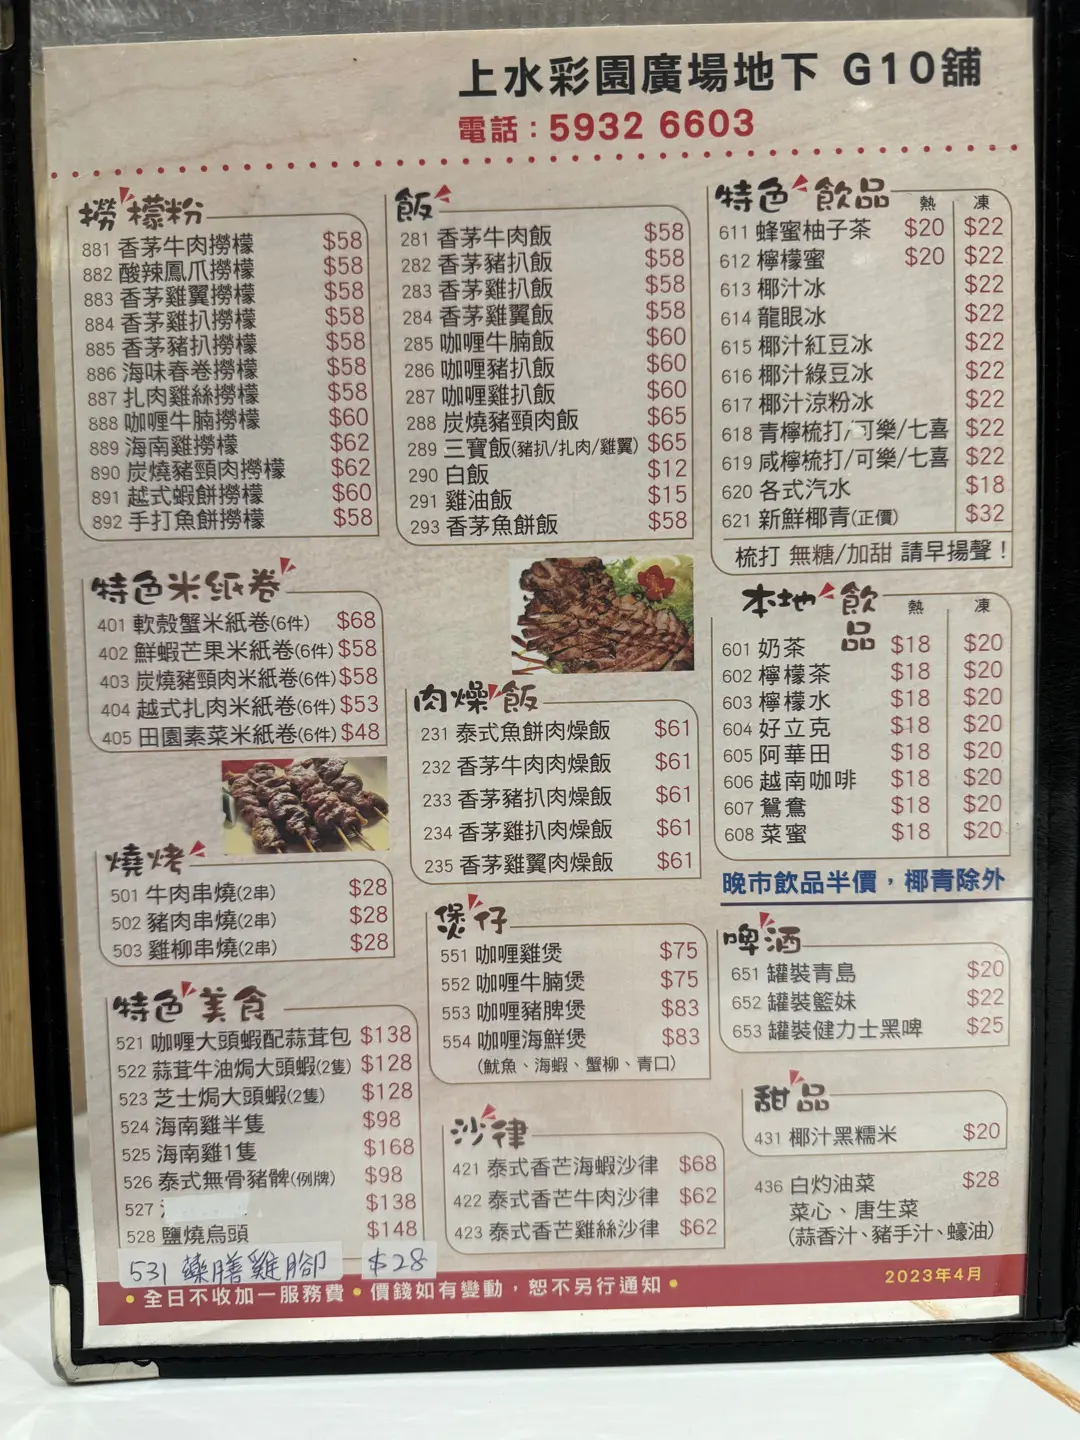 上水彩園廣場地下 G10舖
電話：5932 6603
撈檬粉
881 香茅牛肉撈檬 $58
882 酸辣鳳爪撈檬 $58
883 香茅雞翼撈檬 $58
884 香茅雞扒撈檬 $58
885 香茅豬扒撈檬 $58
886 海味春卷撈檬 $58
887 扎肉雞絲撈檬 $58
888 咖喱牛腩撈檬 $60
889 海南雞撈檬 $62
890 炭燒豬頸肉撈檬 $62
891 越式蝦餅撈檬 $60
892 手打魚餅撈檬 $58
特色米紙卷
401 軟殼蟹米紙卷(6件) $68
402 鮮蝦芒果米紙卷(6件) $58
403 炭燒豬頸肉米紙卷(6件) $58
404 越式扎肉米紙卷(6件) $53
405 田園素菜米紙卷(6件) $48
燒烤
501 牛肉串燒(2串) $28
502 豬肉串燒(2串) $28
503 雞柳串燒(2串) $28
特色美食
521 咖喱大頭蝦配蒜茸包 $138
522 蒜茸牛油焗大頭蝦(2隻) $128
523 芝士焗大頭蝦(2隻) $128
524 海南雞半隻 $98
525 海南雞1隻 $168
526 泰式無骨豬髀(例牌) $98
527 $138
528 鹽燒烏頭 $148
531 藥膳雞腳 $28
飯
281 香茅牛肉飯 $58
282 香茅豬扒飯 $58
283 香茅雞扒飯 $58
284 香茅雞翼飯 $58
285 咖喱牛腩飯 $60
286 咖喱豬扒飯 $60
287 咖喱雞扒飯 $60
288 炭燒豬頸肉飯 $65
289 三寶飯(豬扒/扎肉/雞翼) $65
290 白飯 $12
291 雞油飯 $15
293 香茅魚餅飯 $58
肉燥飯
231 泰式魚餅肉燥飯 $61
232 香茅牛肉肉燥飯 $61
233 香茅豬扒肉燥飯 $61
234 香茅雞扒肉燥飯 $61
235 香茅雞翼肉燥飯 $61
煲仔
551 咖喱雞煲 $75
552 咖喱牛腩煲 $75
553 咖喱豬脾煲 $83
554 咖喱海鮮煲 $83
(魷魚、海蝦、蟹柳、青口)
沙律
421 泰式香芒海蝦沙律 $68
422 泰式香芒牛肉沙律 $62
423 泰式香芒雞絲沙律 $62
特色飲品 熱 凍
611 蜂蜜柚子茶 $20 $22
612 檸檬蜜 $20 $22
613 椰汁冰 $22
614 龍眼冰 $22
615 椰汁紅豆冰 $22
616 椰汁綠豆冰 $22
617 椰汁涼粉冰 $22
618 青檸梳打/可樂/七喜 $22
619 咸檸梳打/可樂/七喜 $22
620 各式汽水 $18
621 新鮮椰青(正價) $32
梳打 無糖/加甜 請早揚聲！
本地飲品 熱 凍
601 奶茶 $18 $20
602 檸檬茶 $18 $20
603 檸檬水 $18 $20
604 好立克 $18 $20
605 阿華田 $18 $20
606 越南咖啡 $18 $20
607 鴛鴦 $18 $20
608 菜蜜 $18 $20
晚市飲品半價，椰青除外
啤酒
651 罐裝青島 $20
652 罐裝籃妹 $22
653 罐裝健力士黑啤 $25
甜品
431 椰汁黑糯米 $20
436 白灼油菜 $28
菜心、唐生菜
(蒜香汁、豬手汁、蠔油)
2023年4月
• 全日不收加一服務費 • 價錢如有變動，恕不另行通知 •